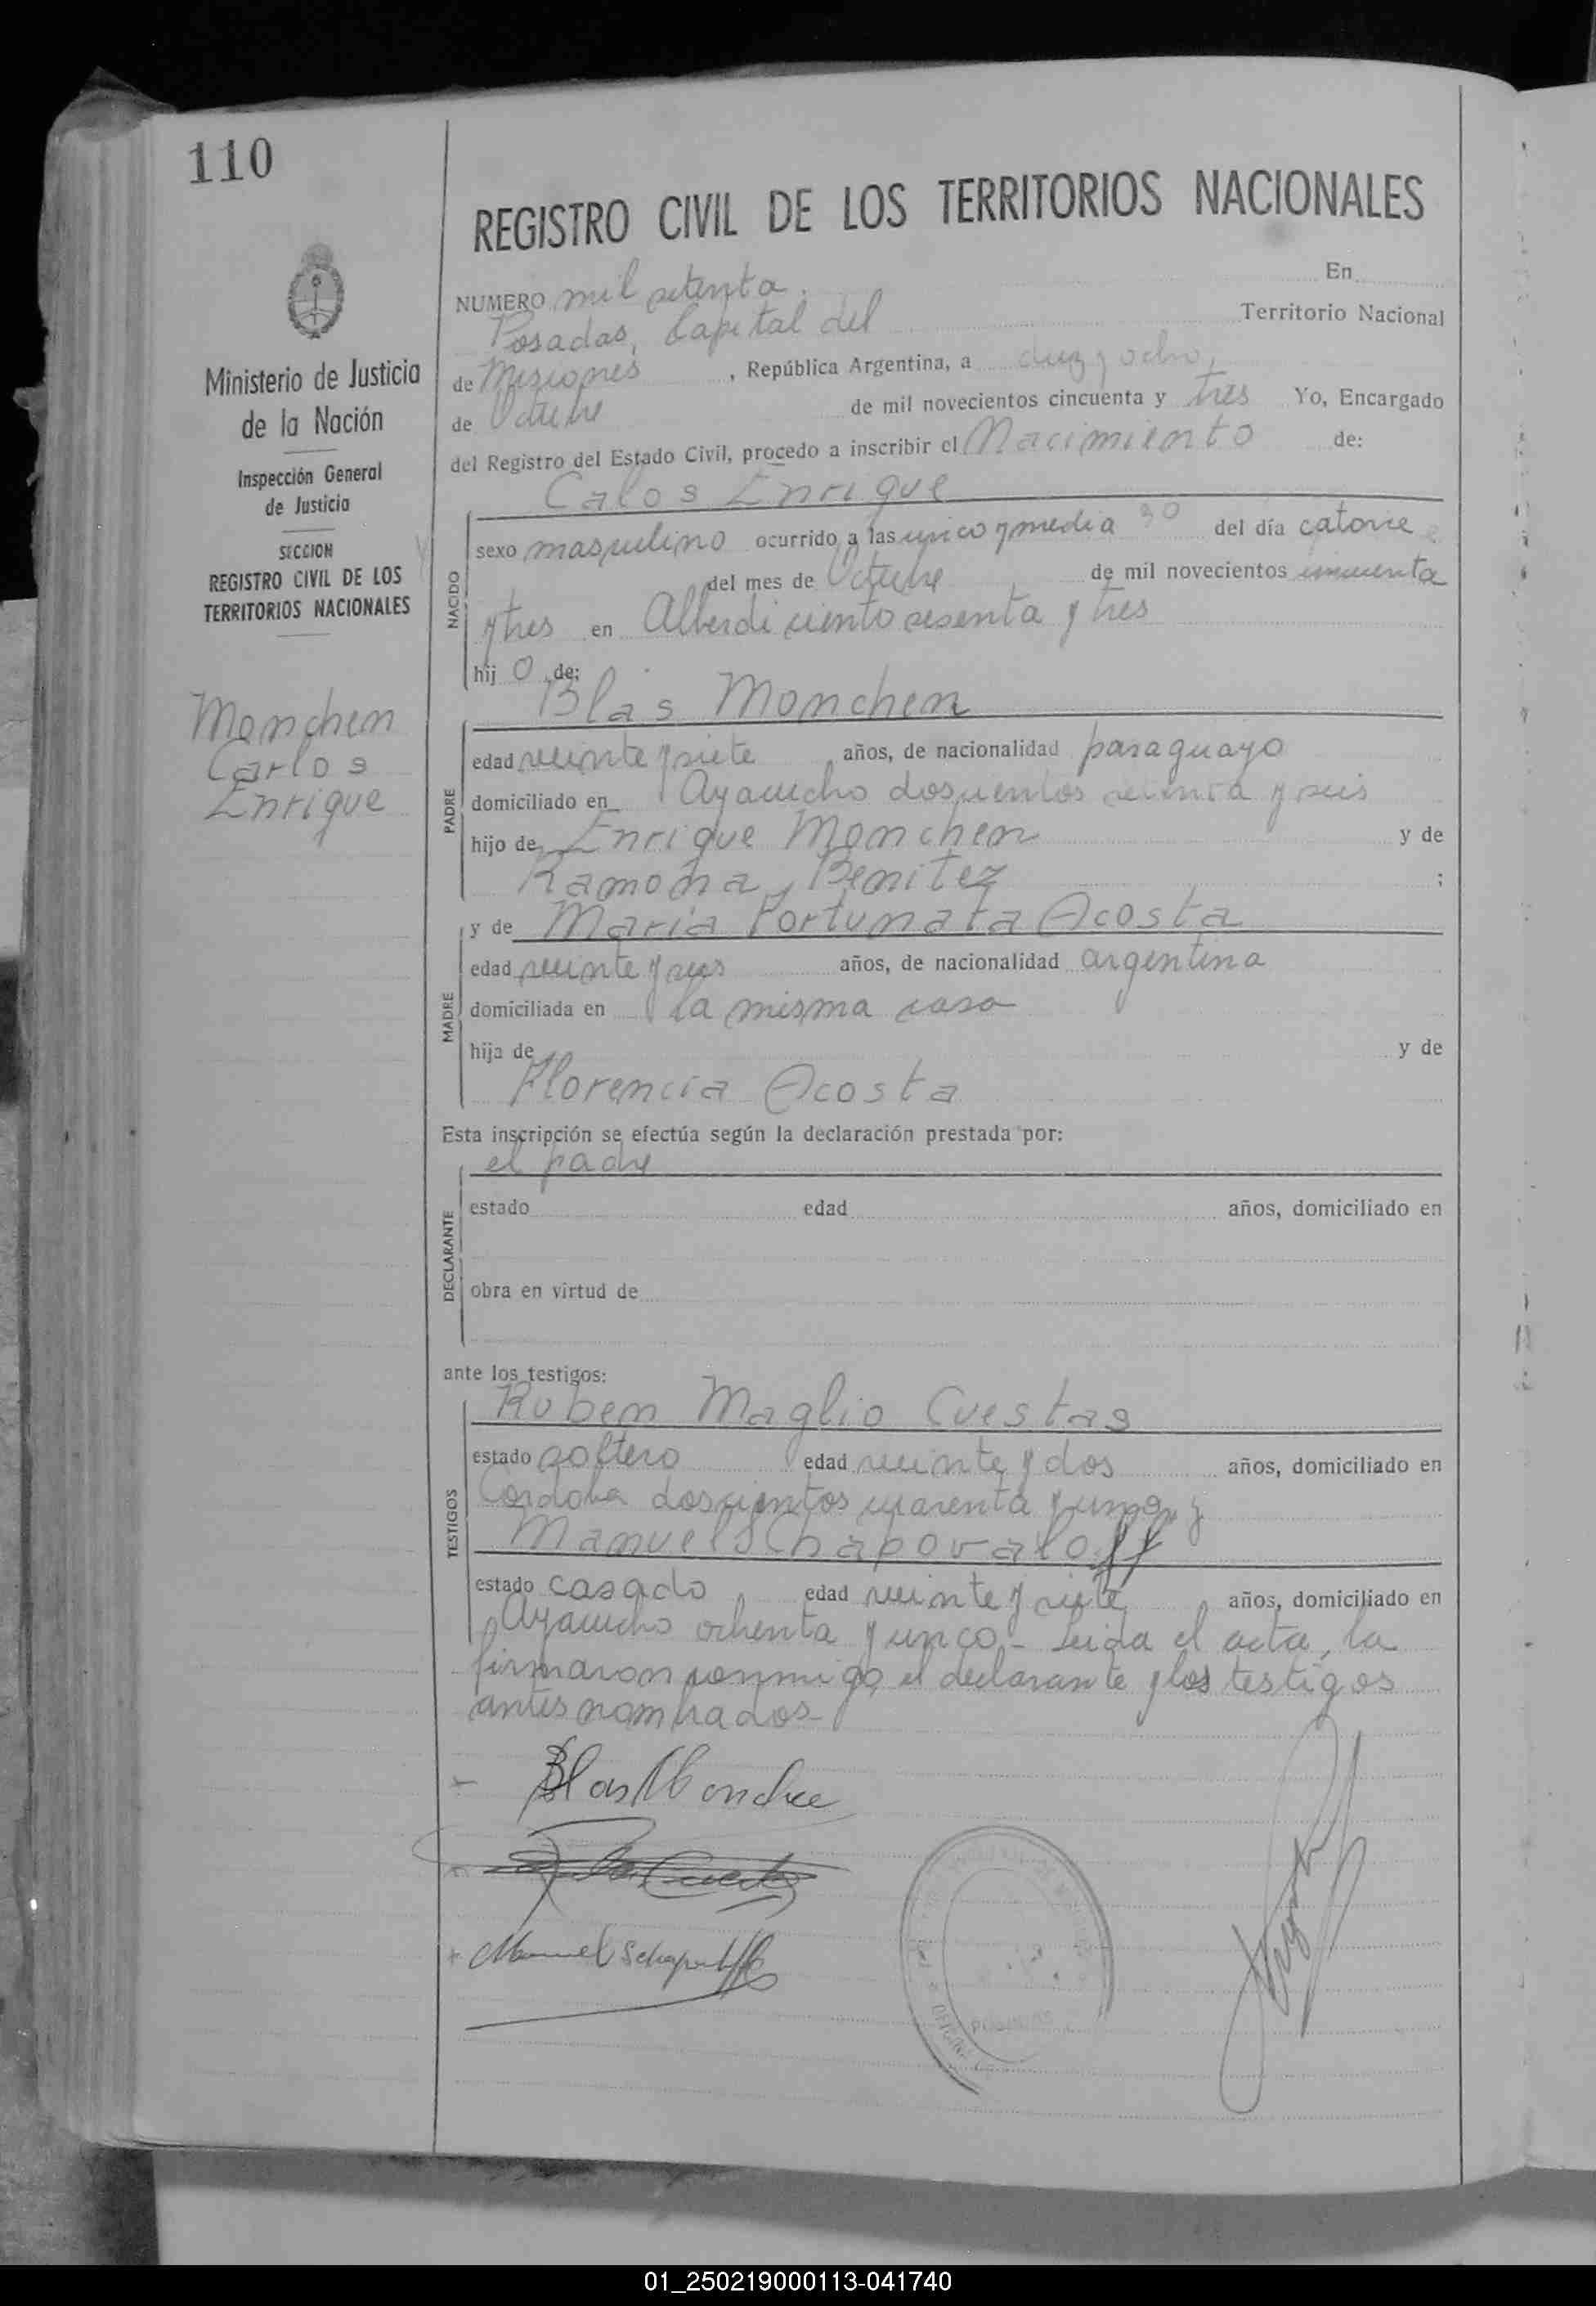 110
REGISTRO CIVIL DE LOS TERRITORIOS NACIONALES
Ministerio de Justicia
de la Nación
Inspección General
de Justicia
SECCION
REGISTRO CIVIL DE LOS
TERRITORIOS NACIONALES
Monchen
Carlos
Enrique
NUMERO mil setenta. En
Posadas, Capital del Territorio Nacional
de Misiones, República Argentina, a diez y ocho,
de Octubre de mil novecientos cincuenta y tres Yo, Encargado
del Registro del Estado Civil, procedo a inscribir el Nacimiento de:
Calos Enrique
NACIDO
sexo masculino ocurrido a las cinco y media del día catorce
del mes de Octubre de mil novecientos cincuenta
y tres en Alberdi ciento sesenta y tres
hij o de:
Blas Monchen
PADRE
edad veinte y siete años, de nacionalidad paraguayo
domiciliado en Ayacucho doscientos setenta y seis
hijo de Enrique Monchen y de
Ramona Benitez ;
y de Maria Fortunata Acosta
MADRE
edad veinte y seis años, de nacionalidad argentina
domiciliada en la misma casa
hija de y de
Florencia Acosta
Esta inscripción se efectúa según la declaración prestada por:
el padre
DECLARANTE
estado edad años, domiciliado en
obra en virtud de
ante los testigos:
Ruben Maglio Cuestas
TESTIGOS
estado soltero edad veinte y dos años, domiciliado en
Córdoba doscientos cuarenta y uno, y
Manuel Schapovaloff
estado casado edad veinte y siete años, domiciliado en
Ayacucho ochenta y cinco - Leida el acta, la
firmaron conmigo el declarante y los testigos
antes nombrados -
Blas Monche
Manuel Schapovaloff
POSADAS
01_250219000113-041740